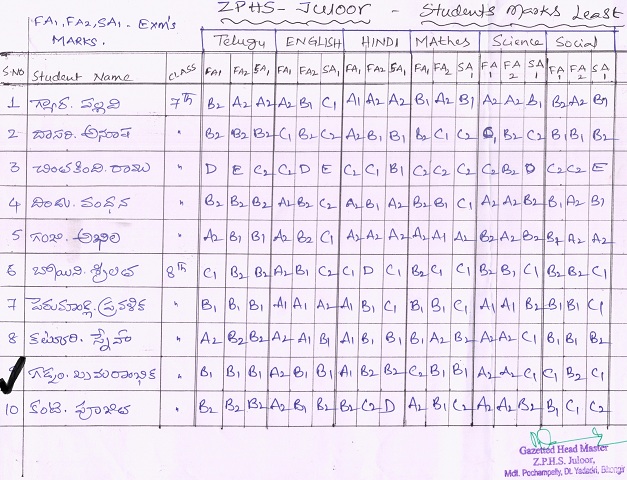 ZPHS- Juloor - Students Marks Least
FA1, FA2, SA1 - Exm's
MARKS.
Telugu ENGLISH HINDI Mathes Science Social
S.NO Student Name CLASS FA1 FA2 SA1 FA1 FA2 SA1 FA1 FA2 SA1 FA1 FA2 SA1 FA1 FA2 SA1 FA1 FA2 SA1
1 గ్యార. పల్లవి 7th B2 A2 A2 A2 B1 C1 A1 A2 A2 B1 A2 B1 A2 A2 B1 B2 A2 B1
2 దాసరి. అనూష " B2 B2 B2 C1 B2 C2 A2 B1 B1 B2 C1 C2 C1 B2 C2 B1 B1 B2
3 చింతకింది. రాము " D E C2 C2 D E C2 C1 B1 C2 C2 C2 C2 B2 D C2 C2 E
4 దిండు. వందన " B2 B2 B2 A2 B2 C2 A2 B1 A2 B2 B1 C1 A2 A2 B2 B1 A2 B1
5 గంజి. అఖిల " A2 B1 B1 A2 B2 C1 A2 A2 A2 A2 A1 A2 B2 A2 B2 B1 A2 A2
6 బోయిని. శ్రీలత 8th C1 B2 B2 A2 B1 C2 C1 D C1 B2 C1 C1 B2 B2 C1 B2 B2 C1
7 పెరుమాండ్ల. ప్రవళిక " B1 B1 B1 A1 A1 A2 A2 B1 C1 B1 B1 C1 A1 A1 B2 B1 B1 C1
8 కట్కూరి. స్నేహ " A2 B2 B2 A2 A1 B1 A1 B1 B1 B1 A2 B2 A2 A2 C1 B1 B1 B2
గడ్డం. బ్రమరాంభిక " B1 B1 B1 A2 B1 B1 A1 B2 B2 C2 B1 B1 A2 A2 C1 C1 B2 C1
10 కంటె. పూజిత " B2 B2 B2 A2 B1 B2 B2 C2 D A2 B1 C2 A2 A2 B2 B1 C1 C2
Gazetted Head Master
Z.P.H.S. Juloor,
Mdl. Pochampally, Dt. Yadadri, Bhongir